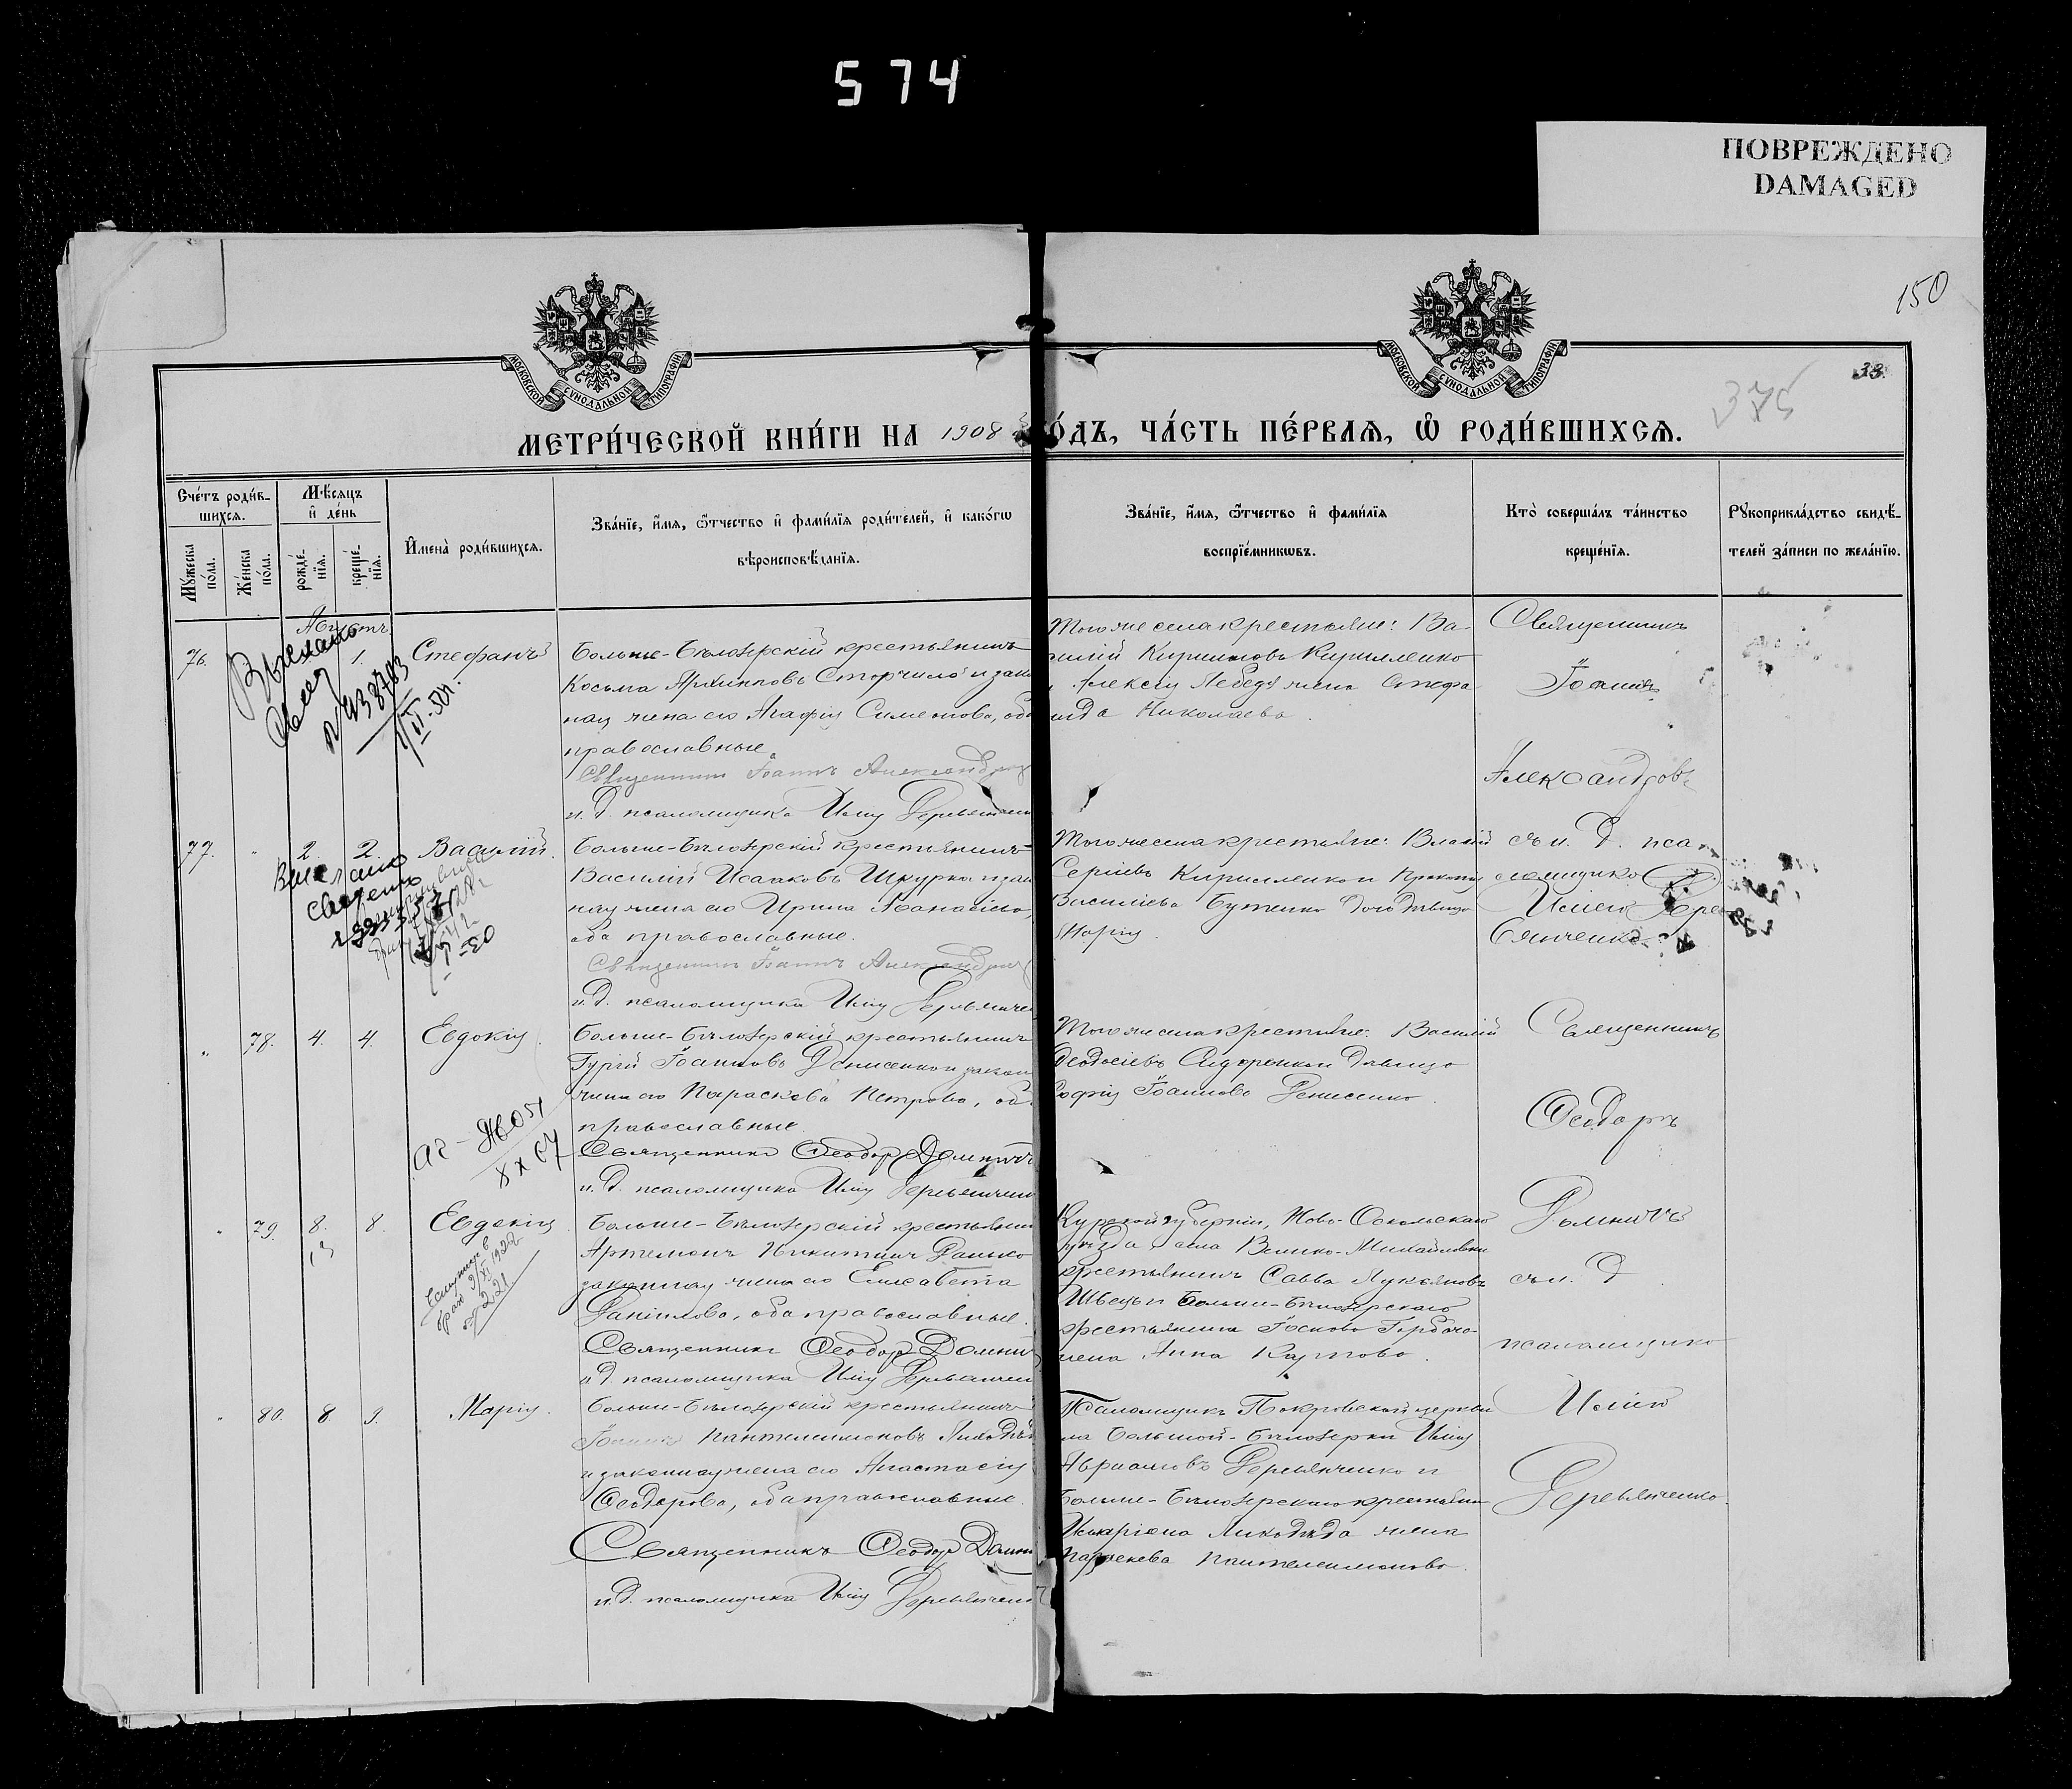 574
ПОВРЕЖДЕНО
DAMAGED
150
33.
375
МОСКОВСКОЙ СѴНОДАЛЬНОЙ ТИПОГРАФІИ
МОСКОВСКОЙ СѴНОДАЛЬНОЙ ТИПОГРАФІИ
МЕТРИ́ЧЕСКОЙ КНИ́ГИ НА 1908 ГО́ДЪ, ЧА́СТЬ ПЕ́РВАЯ, Ѡ РОДИ́ВШИХСЯ.
Сче́тъ роди́в-
шихся.
Мѣ́сяцъ
и де́нь
Му́жеска по́ла.
Же́нска по́ла.
рожде́-
нїя.
креще́-
нїя.
Имена̀ роди́вшихся.
Зва́нїе, и́мя, о́тчество и фами́лїя роди́телей, и како́гѡ
вѣроисповѣ́данїя.
Зва́нїе, и́мя, о́тчество и фами́лїя
воспрїе́мникѡвъ.
Кто̀ соверша́лъ та́инство
креще́нїя.
Рꙋкоприкла́дство свидѣ́-
телей за́писи по жела́нїю.
76.
1.
Стефанъ
Больше-Бѣлозерскій крестьянинъ
Косьма Архиповъ Сторчило и зак
ная жена его Агафія Симеонова, об
православные.
Священникъ Іоаннъ Александров
и. д. псаломщика Илія Деревянчен
Того же села крестьяне: Ва-
силій Кирилловъ Кирилленко
Алексія Лебедя жена Стефа
нида Николаева.
Священникъ
Іоаннъ
Александровъ
77.
2.
2.
Василій.
Больше-Бѣлозерскій крестьянинъ
Василій Исааковъ Шкурко и зак
ная жена его Ирина Аѳанасіева,
оба православные.
Священникъ Іоаннъ Александров
и. д. псаломщика Илія Деревянчен
Того же села крестьяне: Власій
Сергіевъ Кирилленко и Прокопія
Василіева Бутенко дочь дѣвица
Марія.
съ и. д. пса
ломщика
Иліею Дере
вянченко.
78.
4.
4.
Евдокія.
Больше-Бѣлозерскій крестьянинъ
Гурій Іоанновъ Денисенко и закон
жена его Параскева Петрова, об
православные.
Священникъ Ѳеодоръ Домнич
и. д. псаломщика Илія Деревянчен
Того же села крестьяне: Василій
Ѳеодосіевъ Сидоренко и дѣвица
Софія Іоаннова Денисенко.
Священникъ
Ѳеодоръ
Домничъ
79.
8.
8.
Евдокія.
Больше-Бѣлозерскій крестьянин
Артемонъ Никитинъ Данько
законная жена его Елисавета
Даніилова, оба православные.
Священникъ Ѳеодоръ Домнич
и. д. псаломщика Илія Деревянчен
Курской губерніи, Ново-Оскольскаго
уѣзда села Велико-Михайловки
крестьянинъ Савва Лукьяновъ
Швецъ и Больше-Бѣлозерскаго
крестьянина
жена Анна Карпова.
съ и. д.
псаломщика
80.
8
9.
Марія.
Больше-Бѣлозерскій крестьянинъ
Іоаннъ Пантелеимоновъ Лиходѣд
и законная жена его Анастасія
Ѳеодорова, оба православные.
Священникъ Ѳеодоръ Домн
и. д. псаломщика Илія Деревянчен
Псаломщикъ Покровской церкви
ла Большой-Бѣлозерки Илія
Авраамовъ Деревянченко и
Больше-Бѣлозерскаго крестьянин
Иларіона Лиходѣда жена
Параскева Пантелеимонова.
Иліею
Деревянченко.